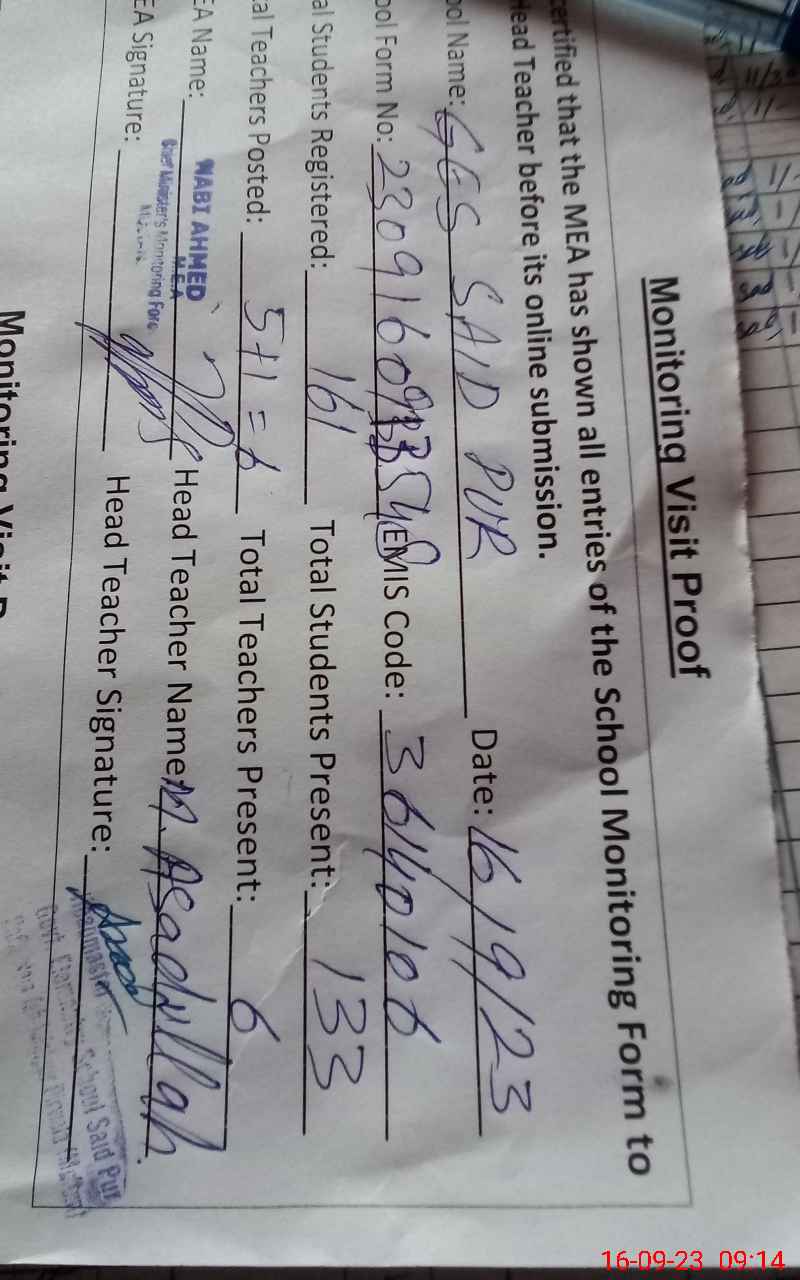 Monitoring Visit Proof
certified that the MEA has shown all entries of the School Monitoring Form to
Head Teacher before its online submission.
ool Name: GES SAID PUR Date: 16/9/23
ool Form No: EMIS Code: 36140106
al Students Registered: 161 Total Students Present: 133
tal Teachers Posted: 5+1=6 Total Teachers Present: 6
EA Name: NABI AHMED Head Teacher Name: M. Asadullah
M.E.A
Chief Minister's Monitoring Force
EA Signature: Head Teacher Signature:
School Said Pur
16-09-23 09:14